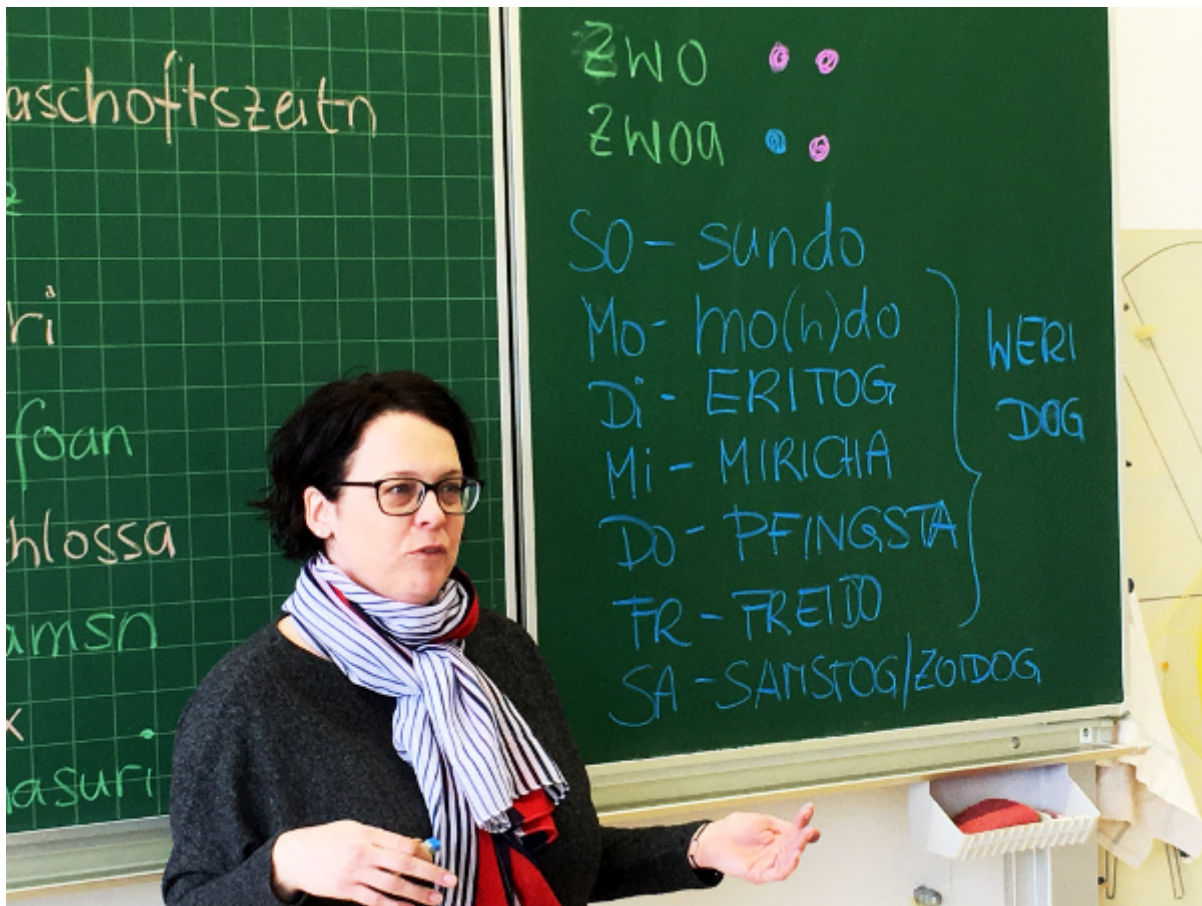 aschoftszeitn
ri
foan
hlossa
amsn
x
asuri
ZWO
ZWOA
SO - sundo
Mo - mo(h)do
Di - ERITOG
Mi - MIRICHA
DO - PFINGSTA
FR - FREIDO
SA - SAMSTOG/ZOIDOG
WERI
DOG